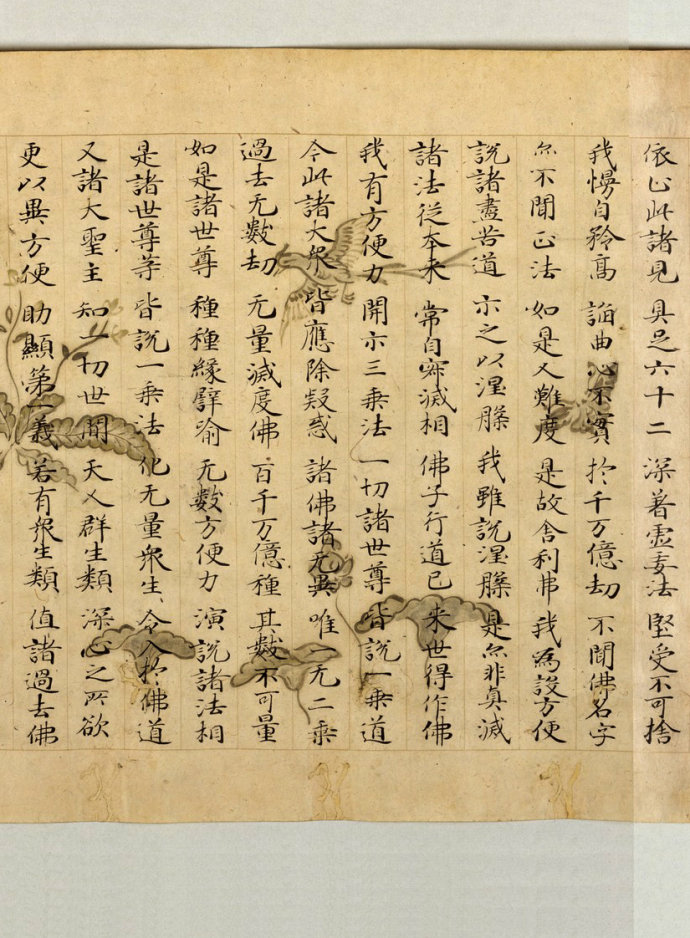 依止此諸見 具足六十二 深著虛妄法 堅受不可捨
我慢自矜高 諂曲心不實 於千万億劫 不聞佛名字
亦不聞正法 如是人難度 是故舍利弗 我為設方便
說諸盡苦道 示之以涅槃 我雖說涅槃 是亦非真滅
諸法從本来 常自寂滅相 佛子行道已 来世得作佛
我有方便力 開示三乘法 一切諸世尊 皆說一乘道
今此諸大衆 皆應除疑惑 諸佛語无異 唯一无二乘
過去无數劫 无量滅度佛 百千万億種 其數不可量
如是諸世尊 種種緣譬喻 无數方便力 演說諸法相
是諸世尊等 皆說一乘法 化无量衆生 令入於佛道
又諸大聖主 知一切世間 天人群生類 深心之所欲
更以異方便 助顯第一義 若有衆生類 值諸過去佛